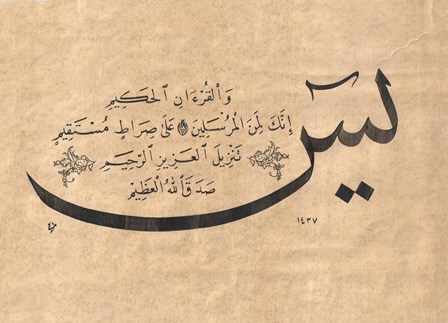 يسٓ
وَٱلْقُرْءَانِ ٱلْحَكِيمِ
إِنَّكَ لَمِنَ الْمُرْسَلِينَ ۝ عَلَىٰ صِرَاطٍ مُسْتَقِيمٍ
تَنْزِيلَ ٱلْعَزِيزِ ٱلرَّحِيمِ
صَدَقَ ٱللهُ الْعَظِيْمُ
١٤٣٧